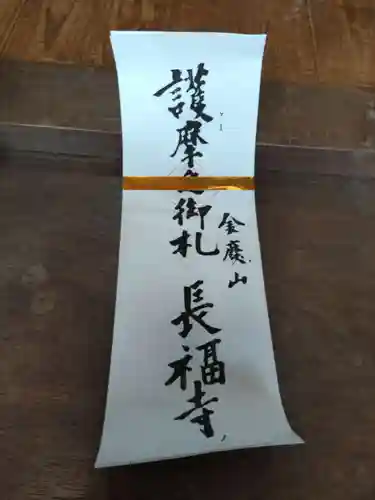 護摩之御札
金鹿山
長福寺